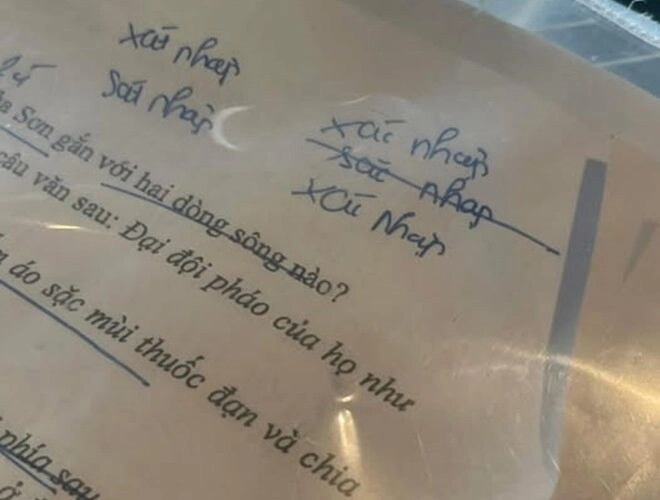 xát nhập
Sát nhập
xác nhập
sác nhập
xác Nhập
Sơn gắn với hai dòng sông nào?
câu văn sau: Đại đội pháo của họ như
áo sặc mùi thuốc đạn và chia
phía sau
ở